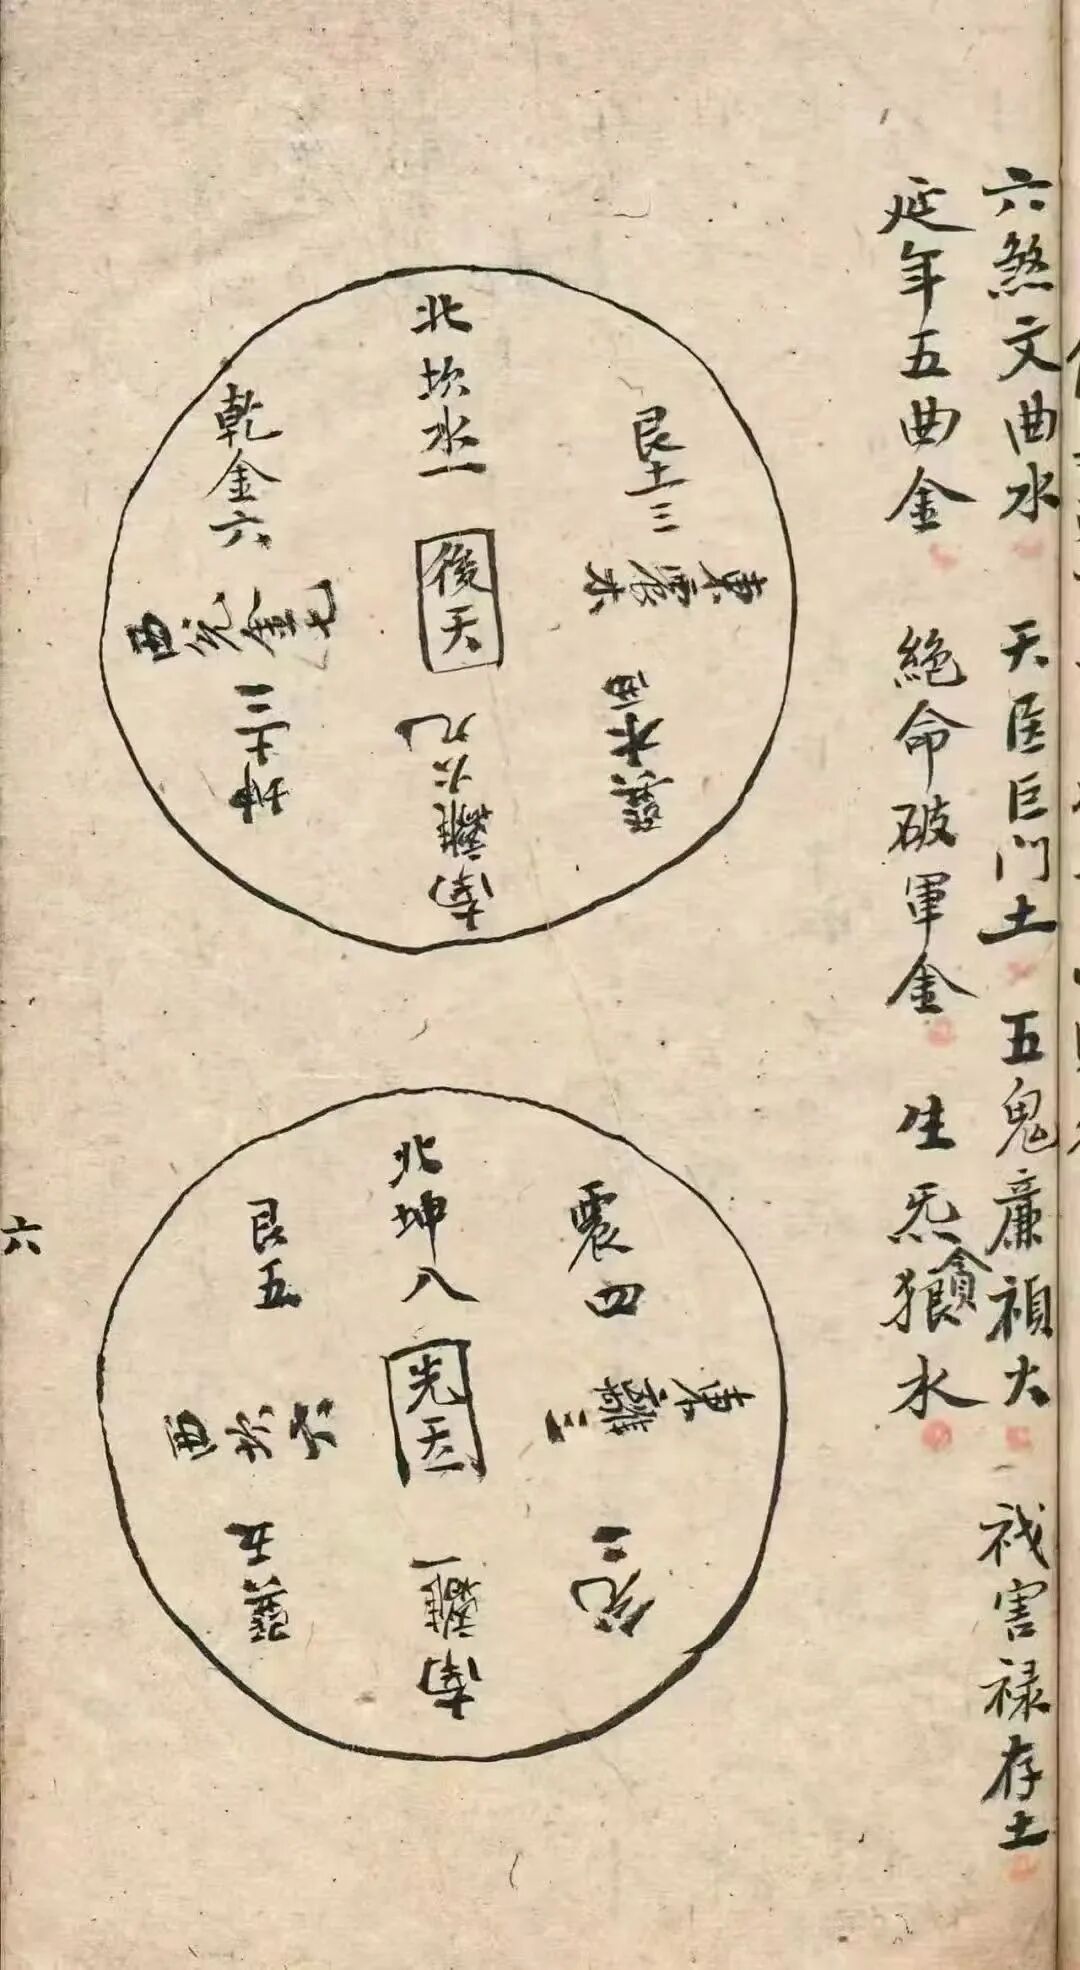 六煞文曲水 天医巨门土 五鬼廉禎火 祑害禄存土
延年五曲金 絕命破軍金 生炁貪狼水
北坎水一
艮土三
東震木
巽木四
南離火九
坤土二
西兌金七
乾金六
後天
北坤八
震四
東離三
兌二
南離一
巽五
西坎六
艮五
先天
六